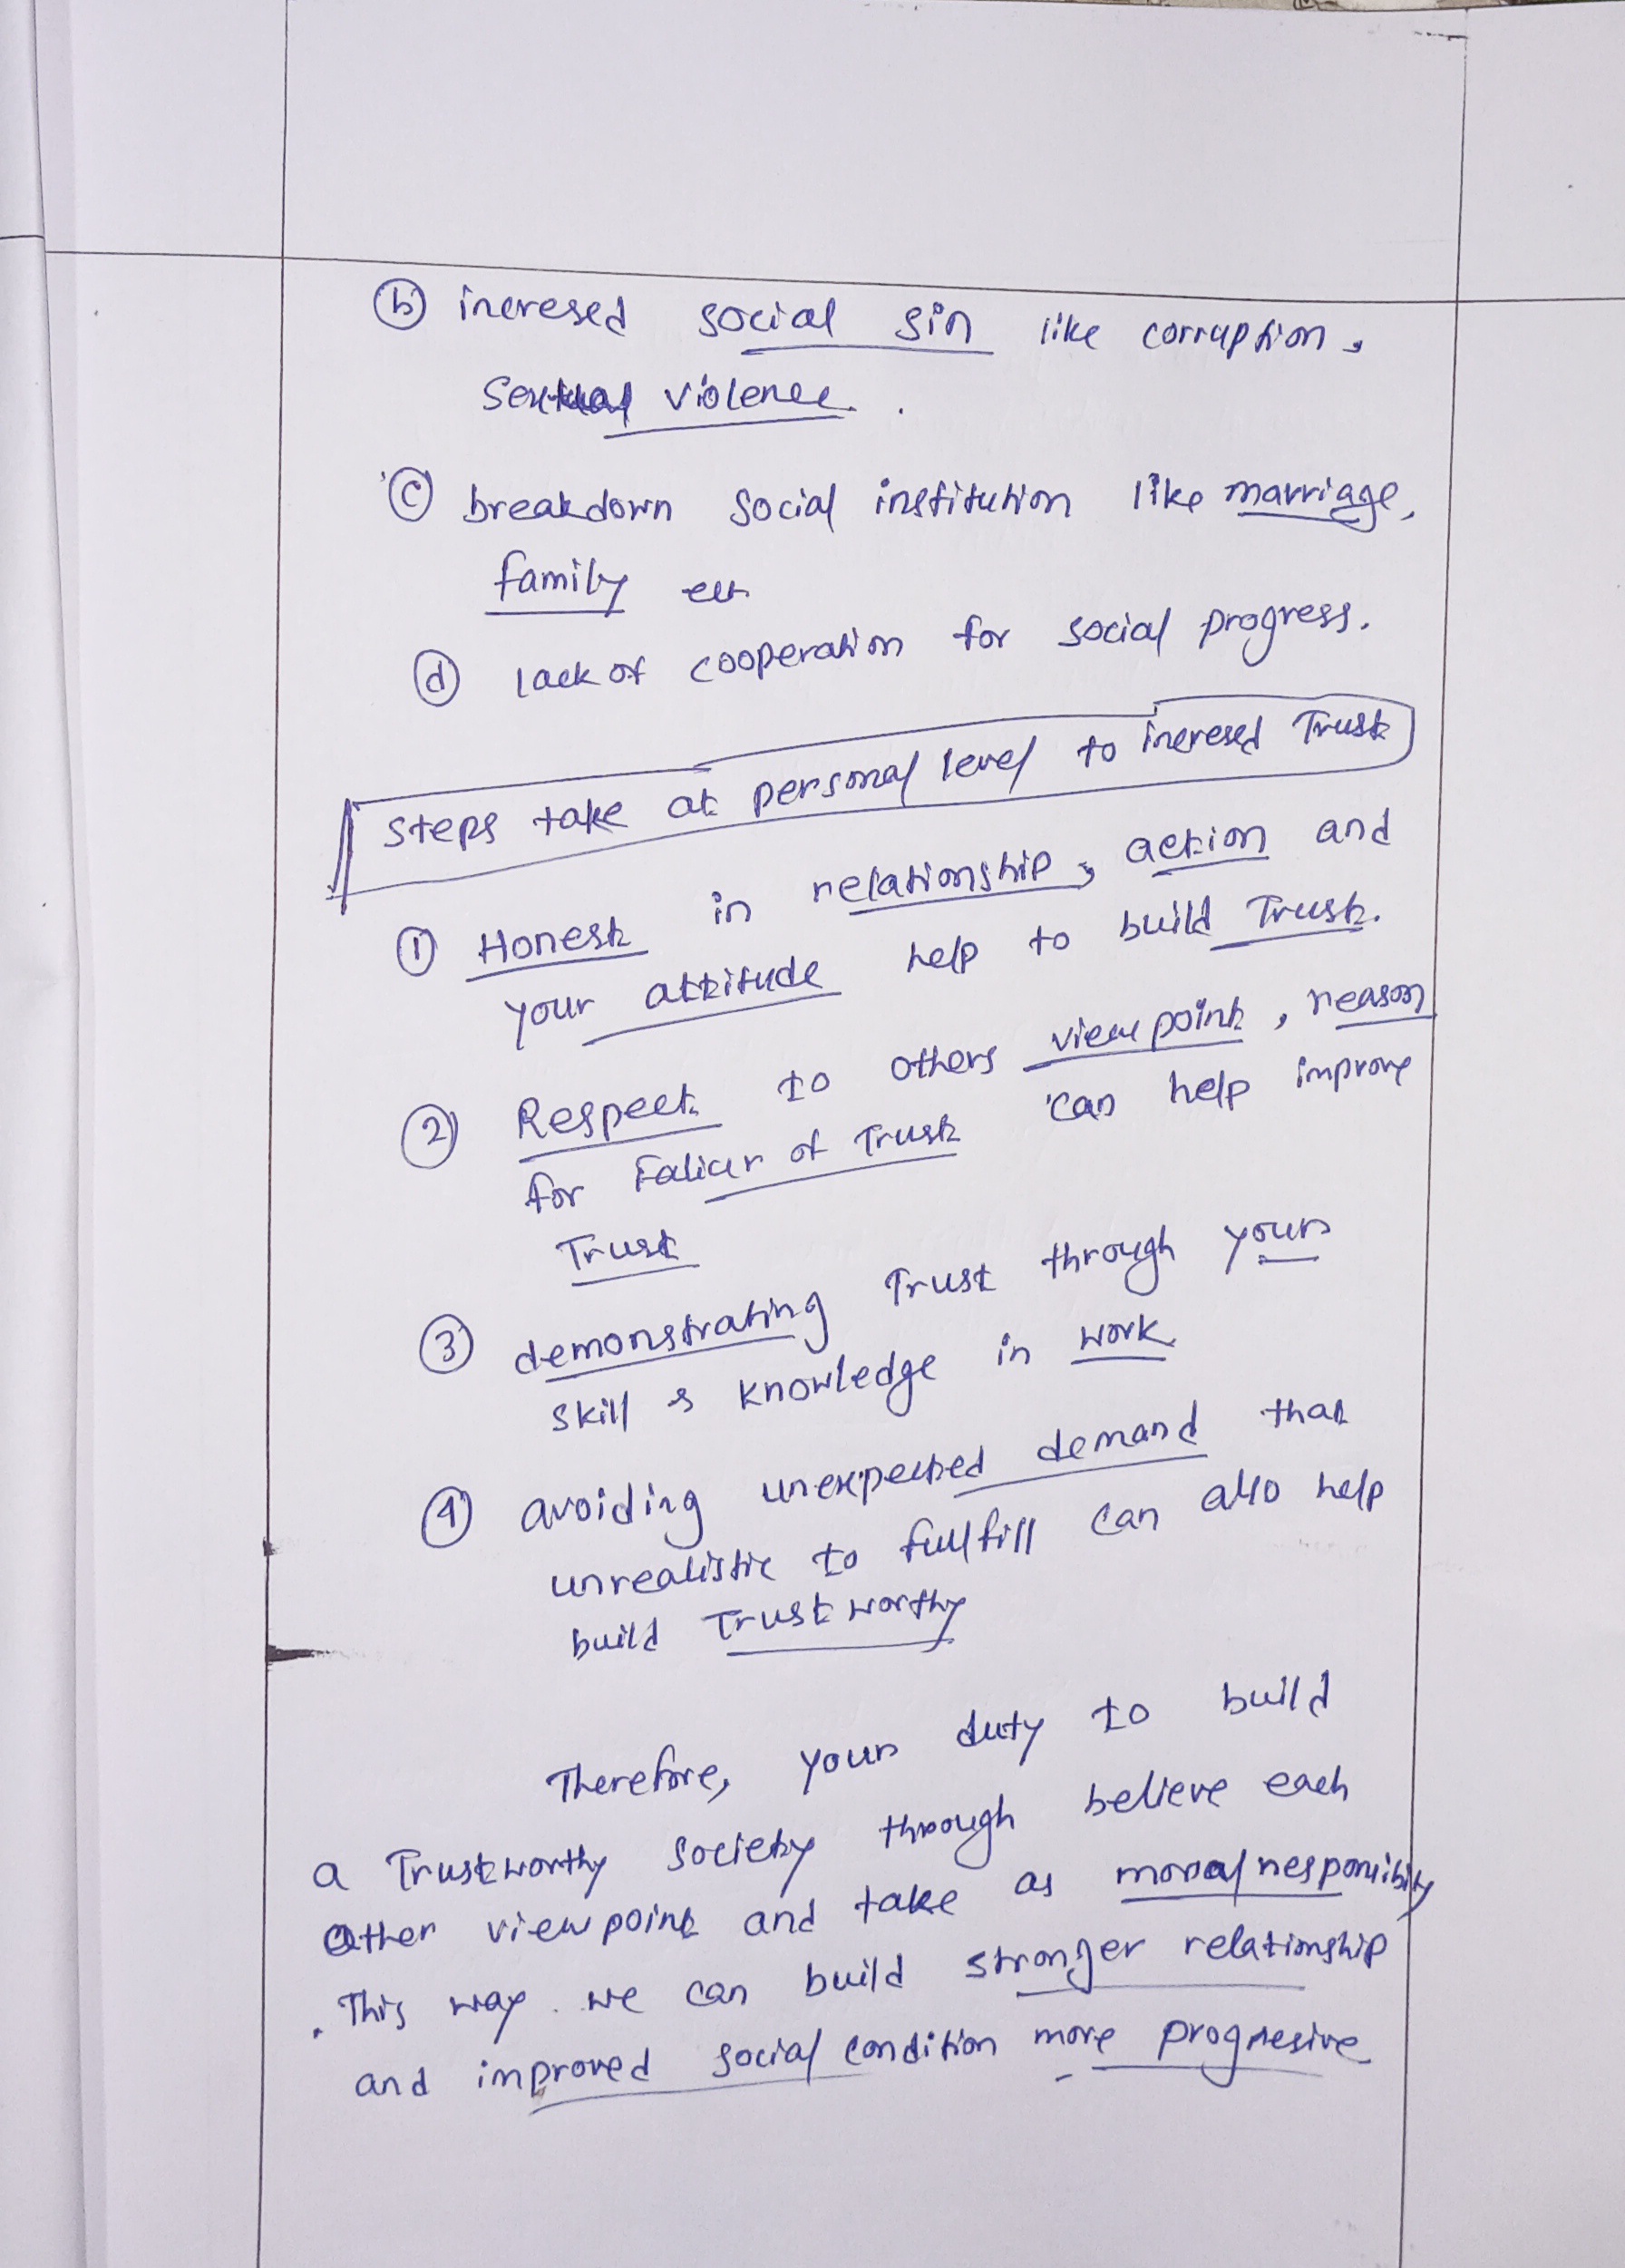 (b) incresed social sin like corruption,
Sexual violence.
(c) breakdown social institution like marriage,
family etc
(d) lack of cooperation for social progress.
Steps take at personal level to incresed Trust
(1) Honest in relationship, action and
your attitude help to build Trust.
(2) Respect to others view point, reason
for Falior of Trust can help improve
Trust
(3) demonstrating Trust through your
skill & knowledge in work
(4) avoiding unexpected demand that
unrealistic to fullfill can also help
build Trust worthy
Therefore, your duty to build
a Trustworthy society through believe each
other view point and take as moral responsibility
. This way we can build stronger relationship
and improved social condition more progresive